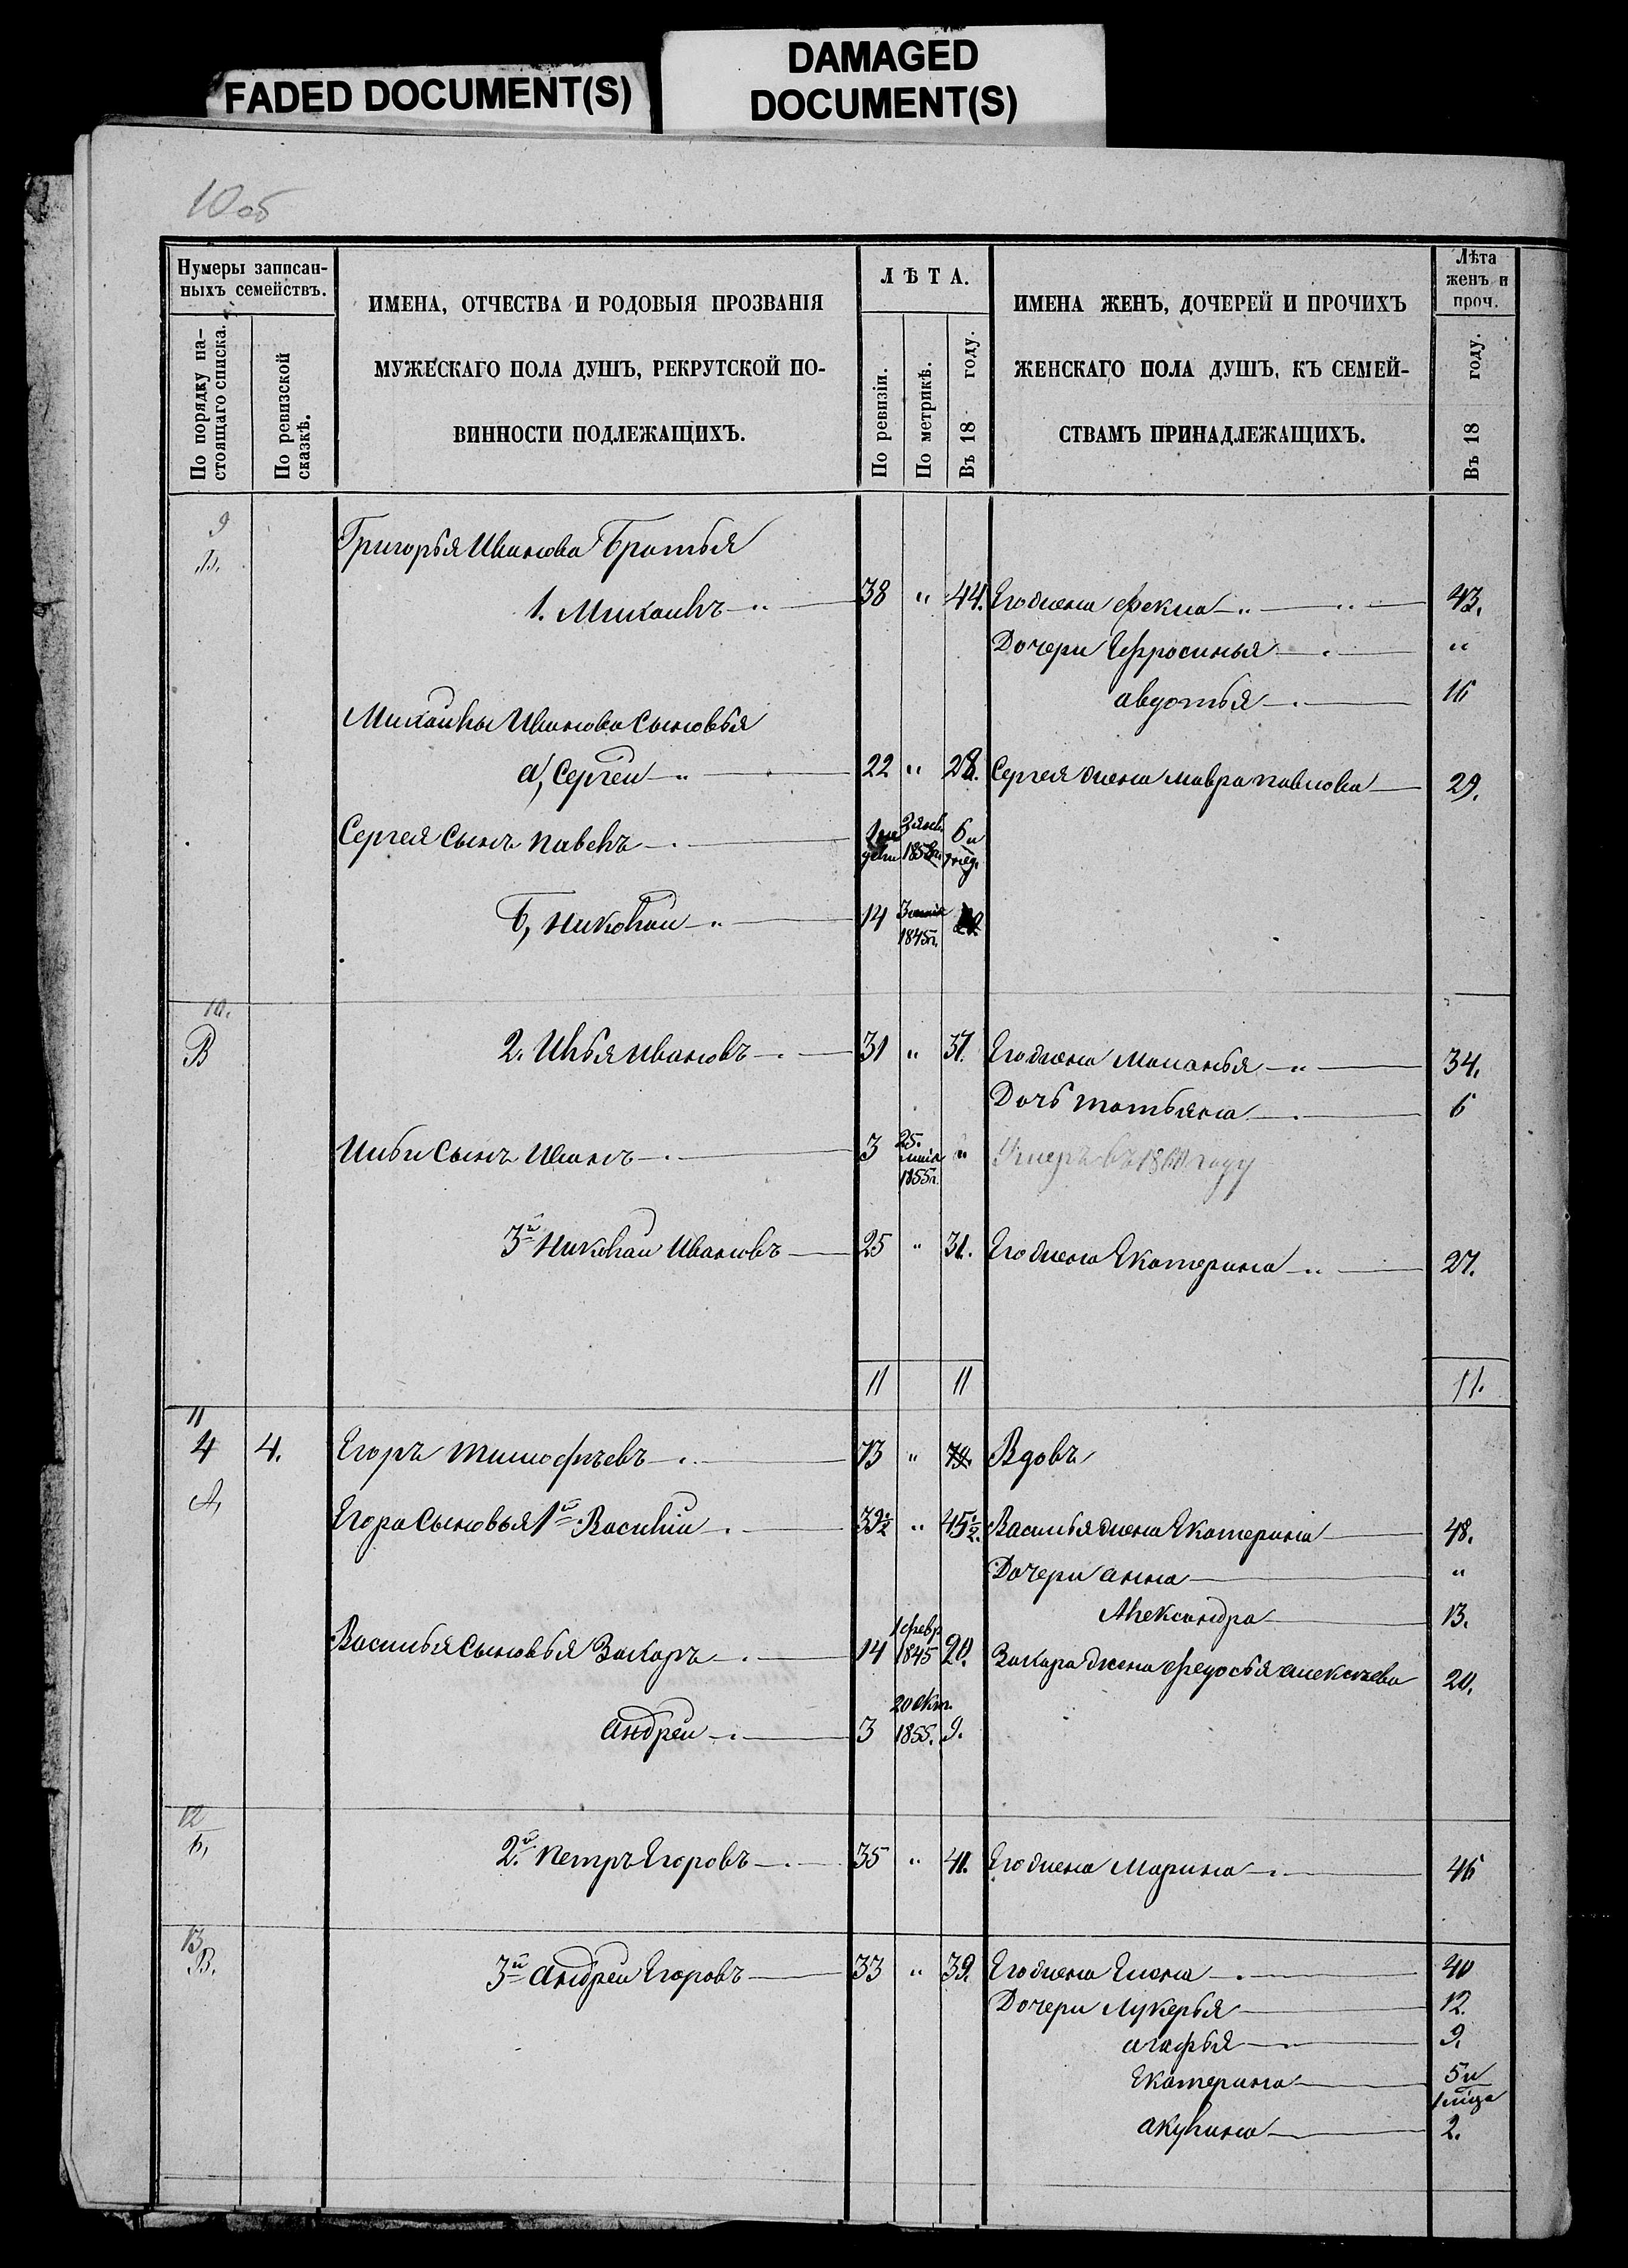 FADED DOCUMENT(S)
DAMAGED
DOCUMENT(S)
10 об
Нумеры записан-
ныхъ семействъ.
По порядку на-
стоящаго списка.
По ревизской
сказкѣ.
ИМЕНА, ОТЧЕСТВА И РОДОВЫЯ ПРОЗВАНІЯ
МУЖЕСКАГО ПОЛА ДУШЪ, РЕКРУТСКОЙ ПО-
ВИННОСТИ ПОДЛЕЖАЩИХЪ.
ЛѢТА.
По ревизіи.
По метрикѣ.
Въ 18 году.
ИМЕНА ЖЕНЪ, ДОЧЕРЕЙ И ПРОЧИХЪ
ЖЕНСКАГО ПОЛА ДУШЪ, КЪ СЕМЕЙ-
СТВАМЪ ПРИНАДЛЕЖАЩИХЪ.
Лѣта
женъ и
проч.
Въ 18 году.
9
Григорья Иванова Братья
1. Михаилъ 38 " 44. Его жена Фекла 43.
Дочери Ефросинья "
авдотья 16
Михаилы Иванова Сыновья
а, Сергеи 22 " 28. Сергея жена мавра павлова 29.
Сергея Сынъ павелъ 6 и
Б, николаи 14 3 1845г.
10.
В
2. Илья ивановъ 31 " 37. Его жена Маланья 34.
Дочь татьяна 6
Ильи Сынъ Иванъ 3 25. 1855г. " Умеръ въ году
3й николаи Ивановъ 25 " 31. Его жена Екатерина 27.
11 11 11.
11
4 4. Егоръ тимофѣевъ 73 " 79. Вдовъ
А, Егора Сыновья 1й Василіи 39½ " 45½. Василья жена Екатерина 48.
Дочери анна "
Александра 13.
Василья Сыновья Захаръ 14 1 февр 1845 20. Захара жена федосья алексѣева 20.
андреи 3 20 окт. 1855. 9.
12
б, 2й петръ Егоровъ 35 " 41. Его жена Марина 46
13
В. 3й андреи Егоровъ 33 " 39. Его жена Елена 40
Дочери Лукерья 12.
агафья 9.
Екатерина 5 и
1 мѣца
акулина 2.